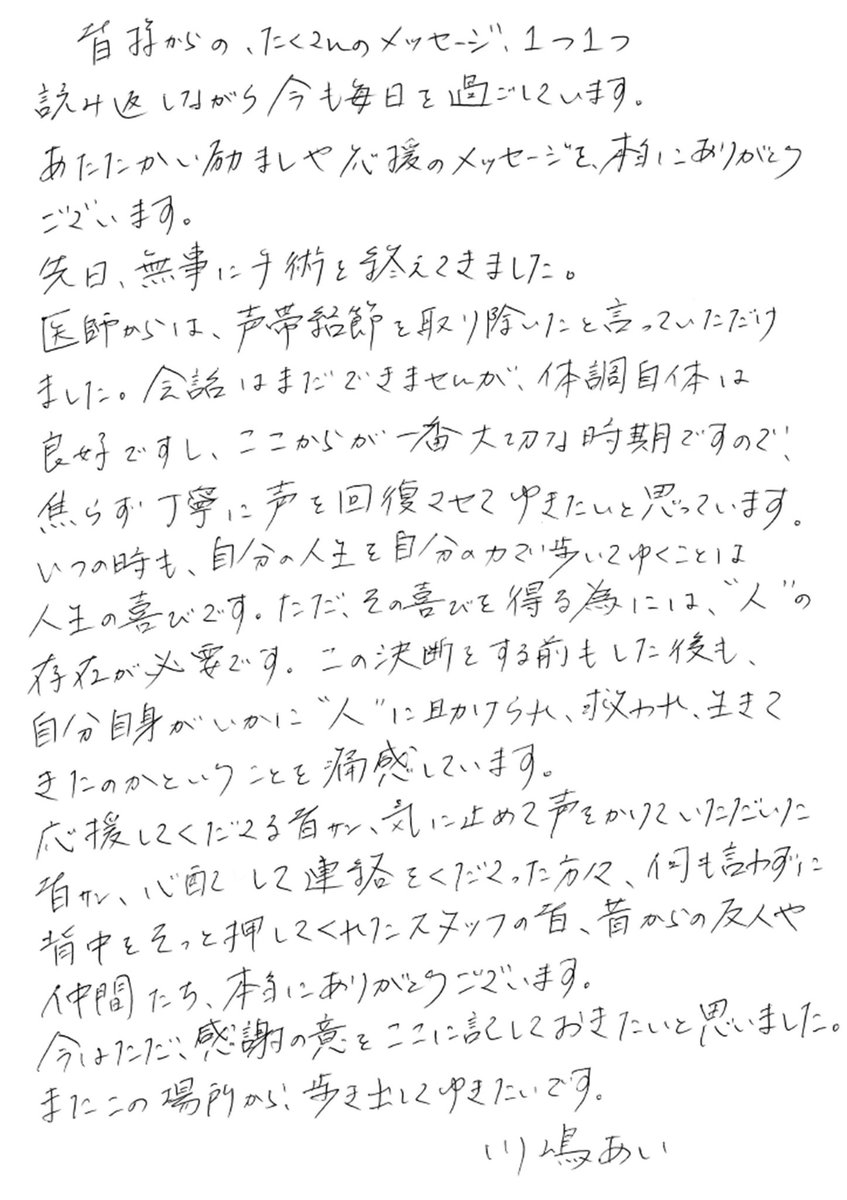 皆様からの、たくさんのメッセージ、1つ1つ
読み返しながら今も毎日を過ごしています。
あたたかい励ましや応援のメッセージを、本当にありがとう
ございます。
先日、無事に手術を終えてきました。
医師からは、声帯結節を取り除いたと言っていただけ
ました。会話はまだできませんが、体調自体は
良好ですし、ここからが一番大切な時期ですので、
焦らず丁寧に声を回復させてゆきたいと思っています。
いつの時も、自分の人生を自分の力で歩いてゆくことは
人生の喜びです。ただ、その喜びを得る為には、"人"の
存在が必要です。この決断をする前もした後も、
自分自身がいかに"人"に助けられ、救われ、生きて
きたのかということを痛感しています。
応援してくださる皆サン、気に止めて声をかけていただいた
皆サン、心配して連絡をくださった方々、何も言わずに
背中をそっと押してくれたスタッフの皆、昔からの友人や
仲間たち、本当にありがとうございます。
今はただ、感謝の意をここに記しておきたいと思いました。
またこの場所から、歩き出してゆきたいです。
川嶋あい